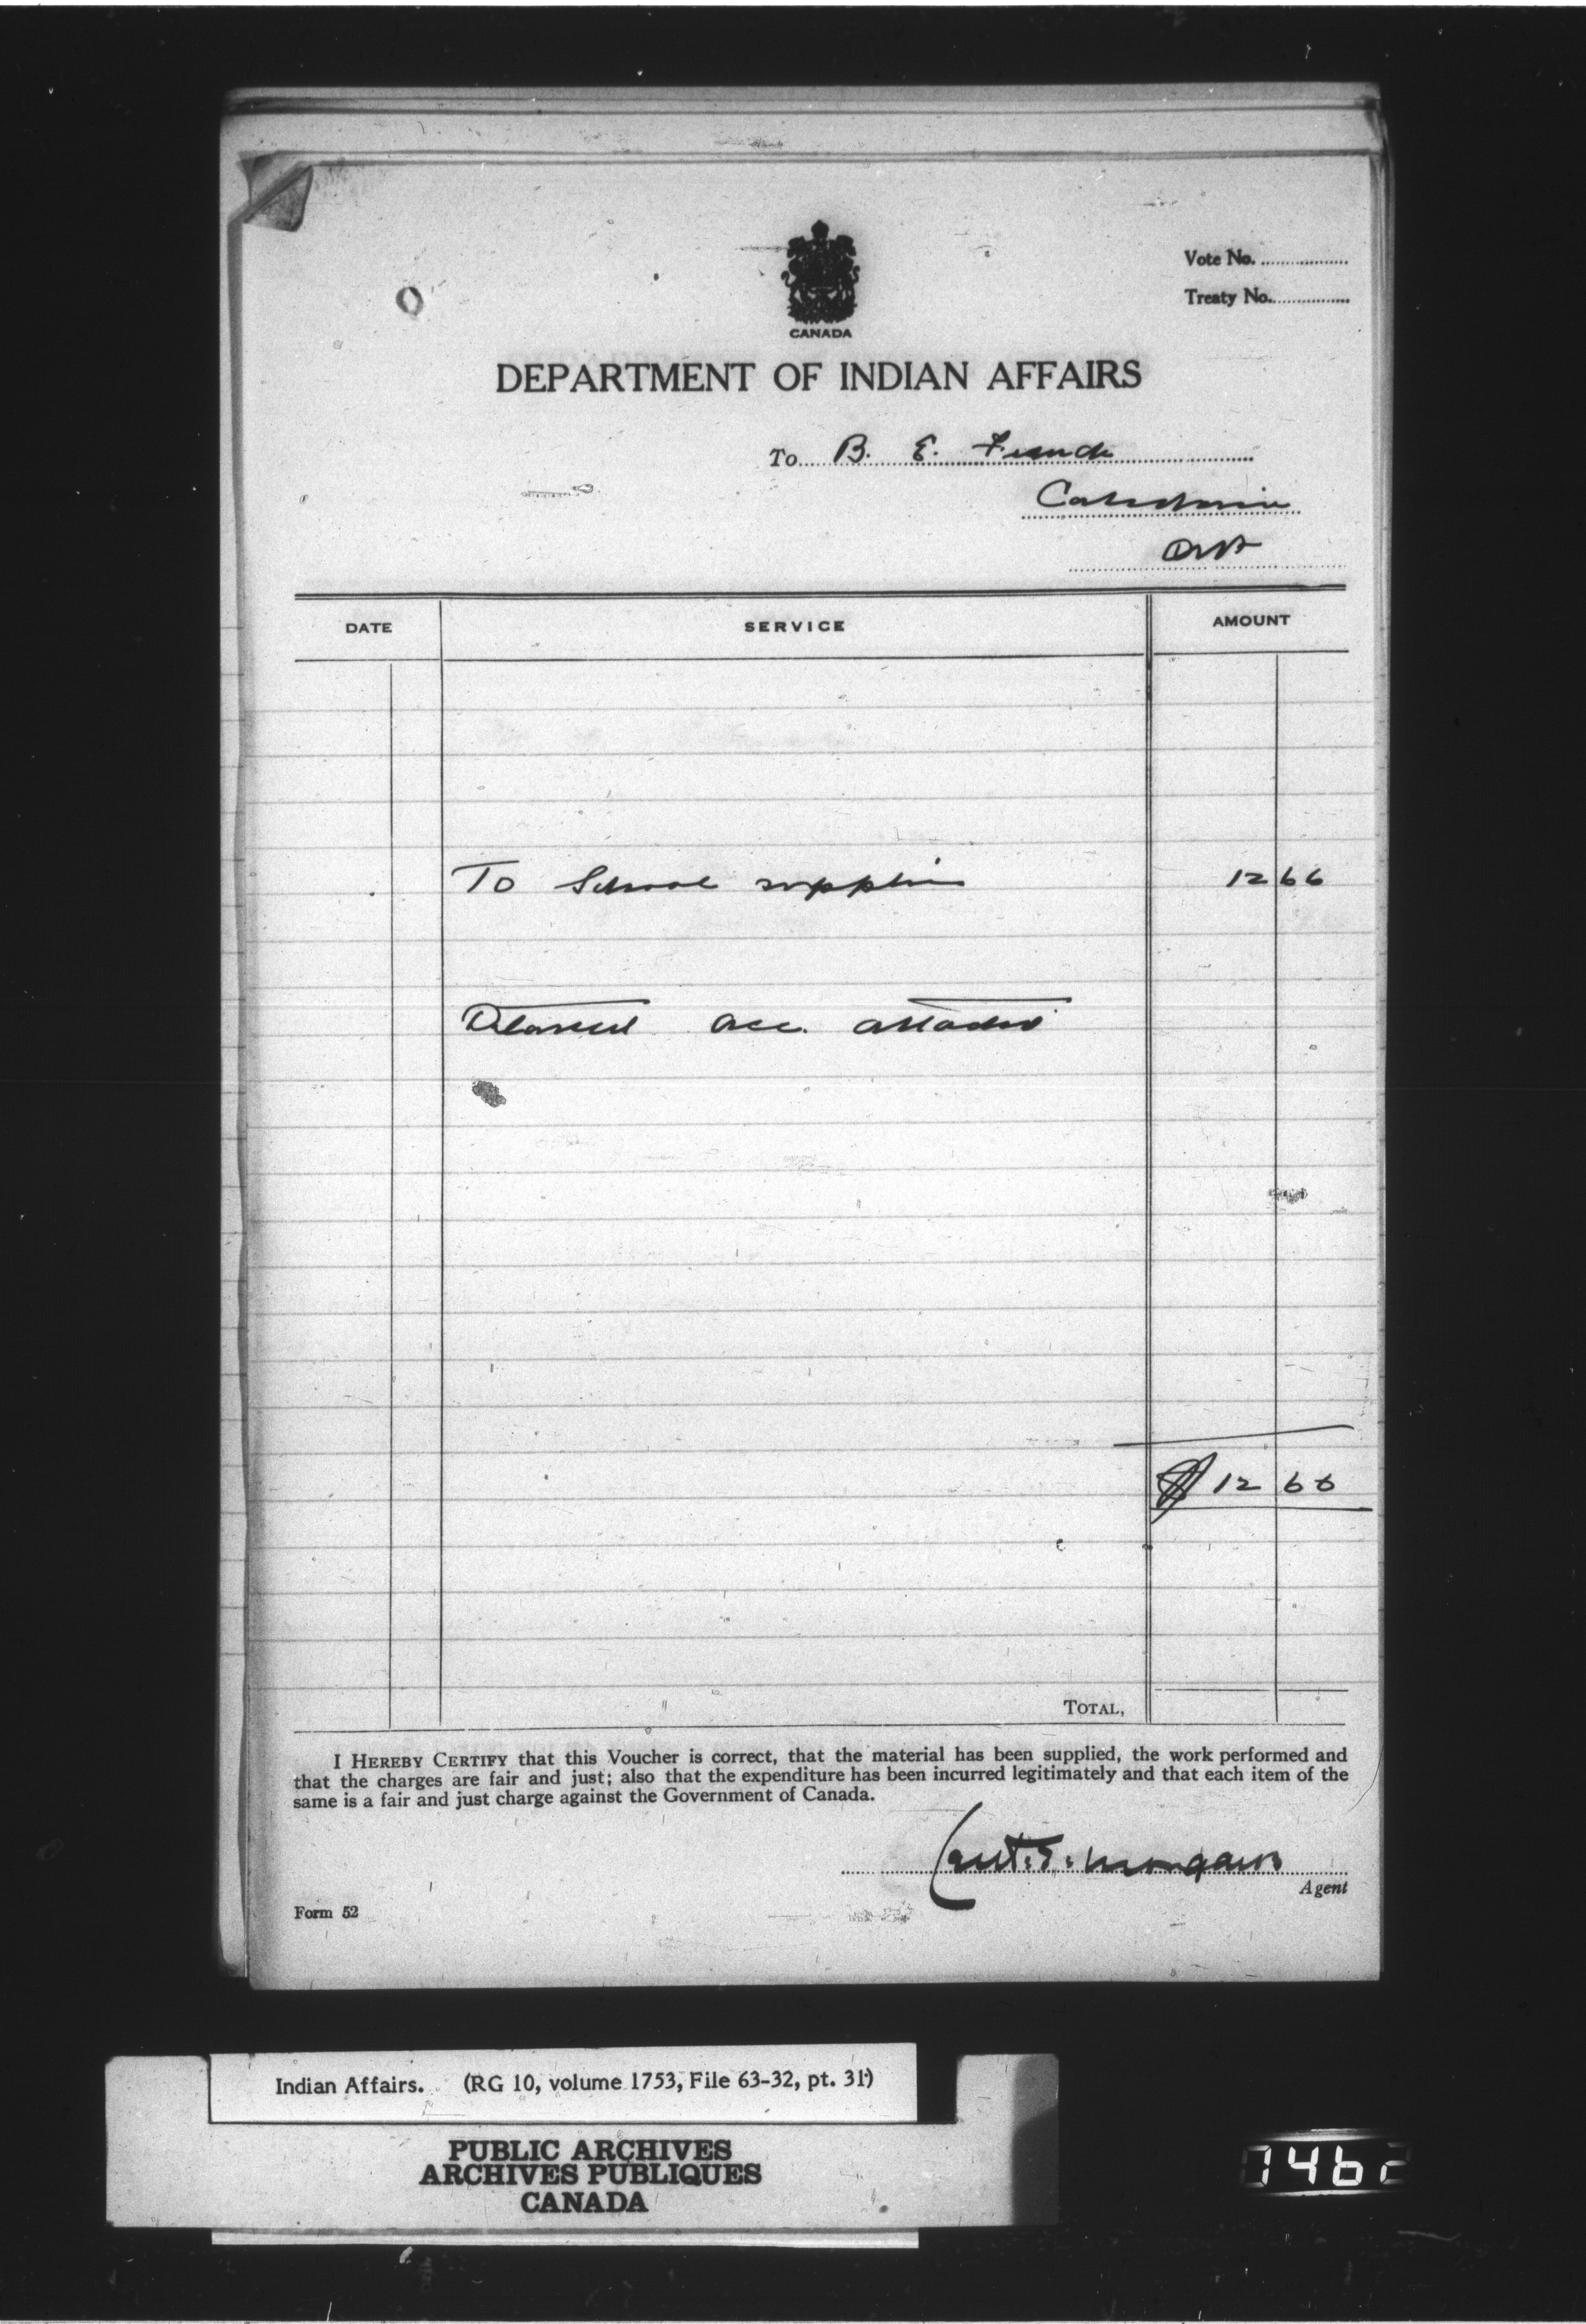 Vote No.
Treaty No.
CANADA
DEPARTMENT OF INDIAN AFFAIRS
To B. E. French
Caledonia
Ont
DATE SERVICE AMOUNT
To School supplies 12 66
Detailed acc. attached
$ 12 66
TOTAL,
I HEREBY CERTIFY that this Voucher is correct, that the material has been supplied, the work performed and
that the charges are fair and just; also that the expenditure has been incurred legitimately and that each item of the
same is a fair and just charge against the Government of Canada.
Morgan
Agent
Form 52
Indian Affairs. (RG 10, volume 1753, File 63-32, pt. 31)
PUBLIC ARCHIVES
ARCHIVES PUBLIQUES
CANADA